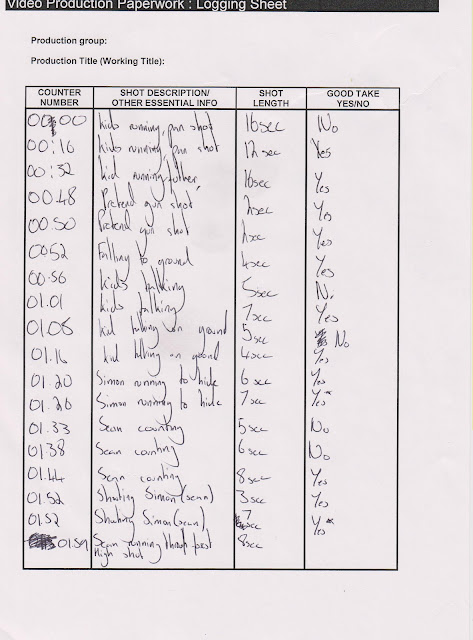 Video Production Paperwork : Logging Sheet
Production group:
Production Title (Working Title):
COUNTER NUMBER SHOT DESCRIPTION/ OTHER ESSENTIAL INFO SHOT LENGTH GOOD TAKE YES/NO
00:00 kids running, pan shot 16sec No
00:16 kids running, pan shot 12sec Yes
00:32 kid running 16sec Yes
00.48 Pretend gun shot 2sec Yes
00.50 Pretend gun shot 2sec Yes
0052 Falling to ground 4sec Yes
00.56 kids talking 5sec No
01.01 kids talking 7sec Yes
01.06 kid falling on ground 5sec No
01.16 kid falling on ground 4sec Yes
01.20 Simon running to hide 6sec Yes
01.26 Simon running to hide 7sec Yes*
01.33 Sean counting 5sec No
01.38 Sean counting 6sec No
01.44 Sean counting 8sec Yes
01.52 Shooting Simon (sean) 3sec Yes
01.52 Shooting Simon (sean) 7sec Yes*
01.59 Sean running 8sec
High shot